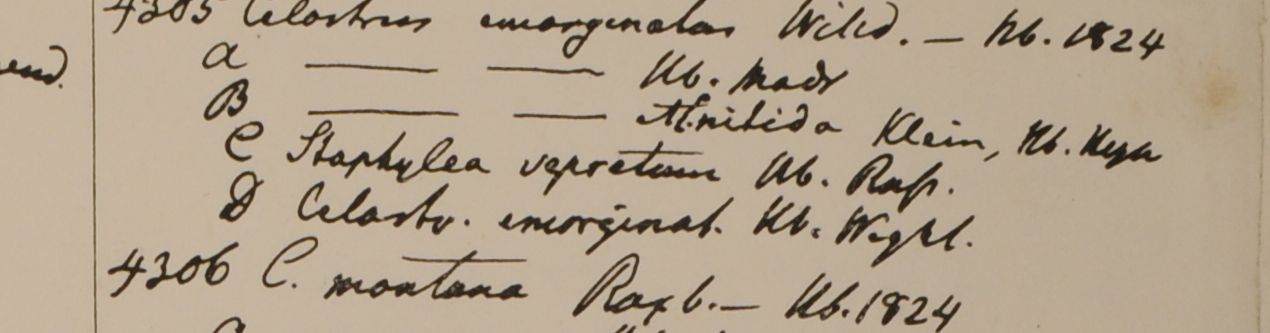 4305 Celastrus emarginatus Willd. — Hb. 1824
a ——— ——— Hb. Madr
B ——— ——— nitida Klein, Hb. Heyn
C Staphylea vepretum Hb. Russ.
D Celastr. emarginat. Hb. Wight.
4306 C. montana Roxb. — Hb. 1824